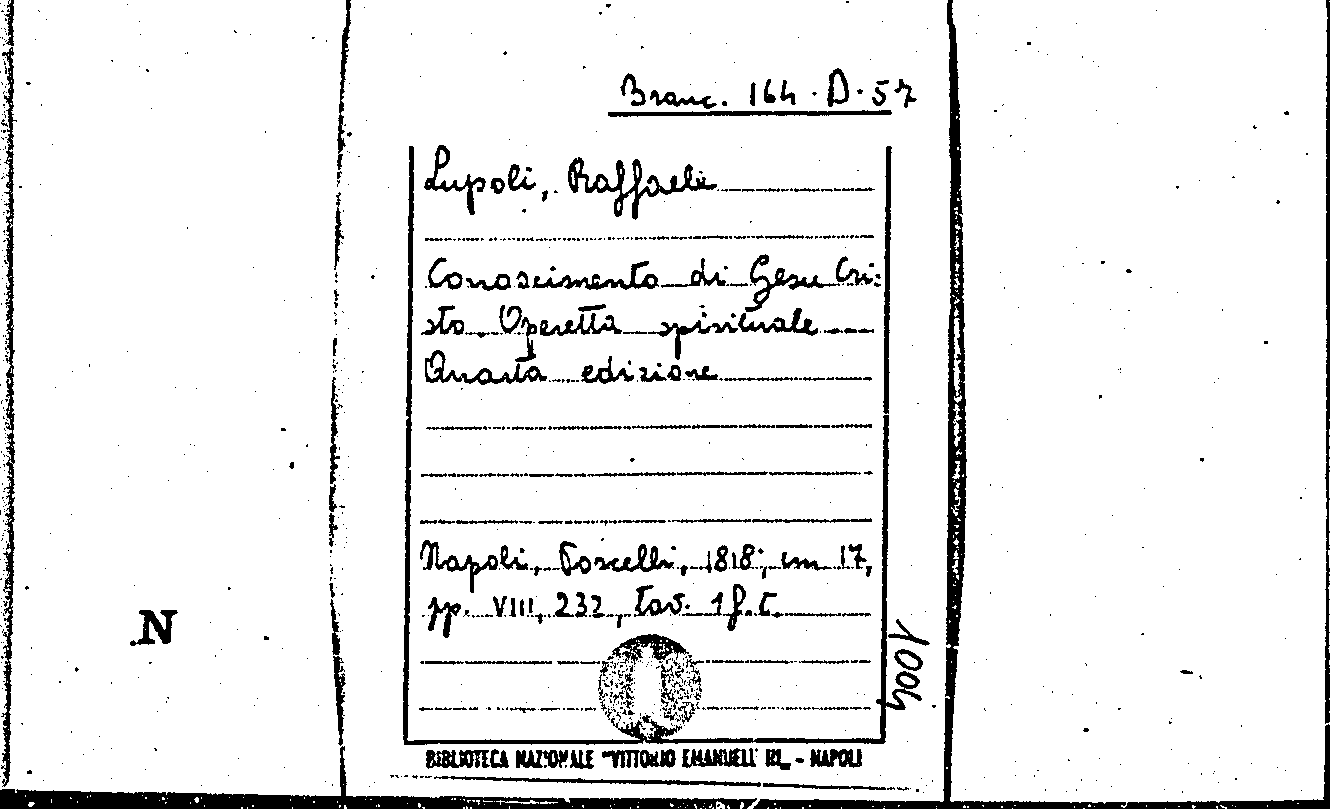 Branc. 164.D.57
Lupoli, Raffaele
Conoscimento di Gesu Cri-
sto. Operetta spirituale
Quarta edizione
Napoli, Porcelli, 1818; cm 17,
pp. VIII, 232, tav. 1 f.t.
N
1004
BIBLIOTECA NAZIONALE "VITTORIO EMANUELE III_ - NAPOLI